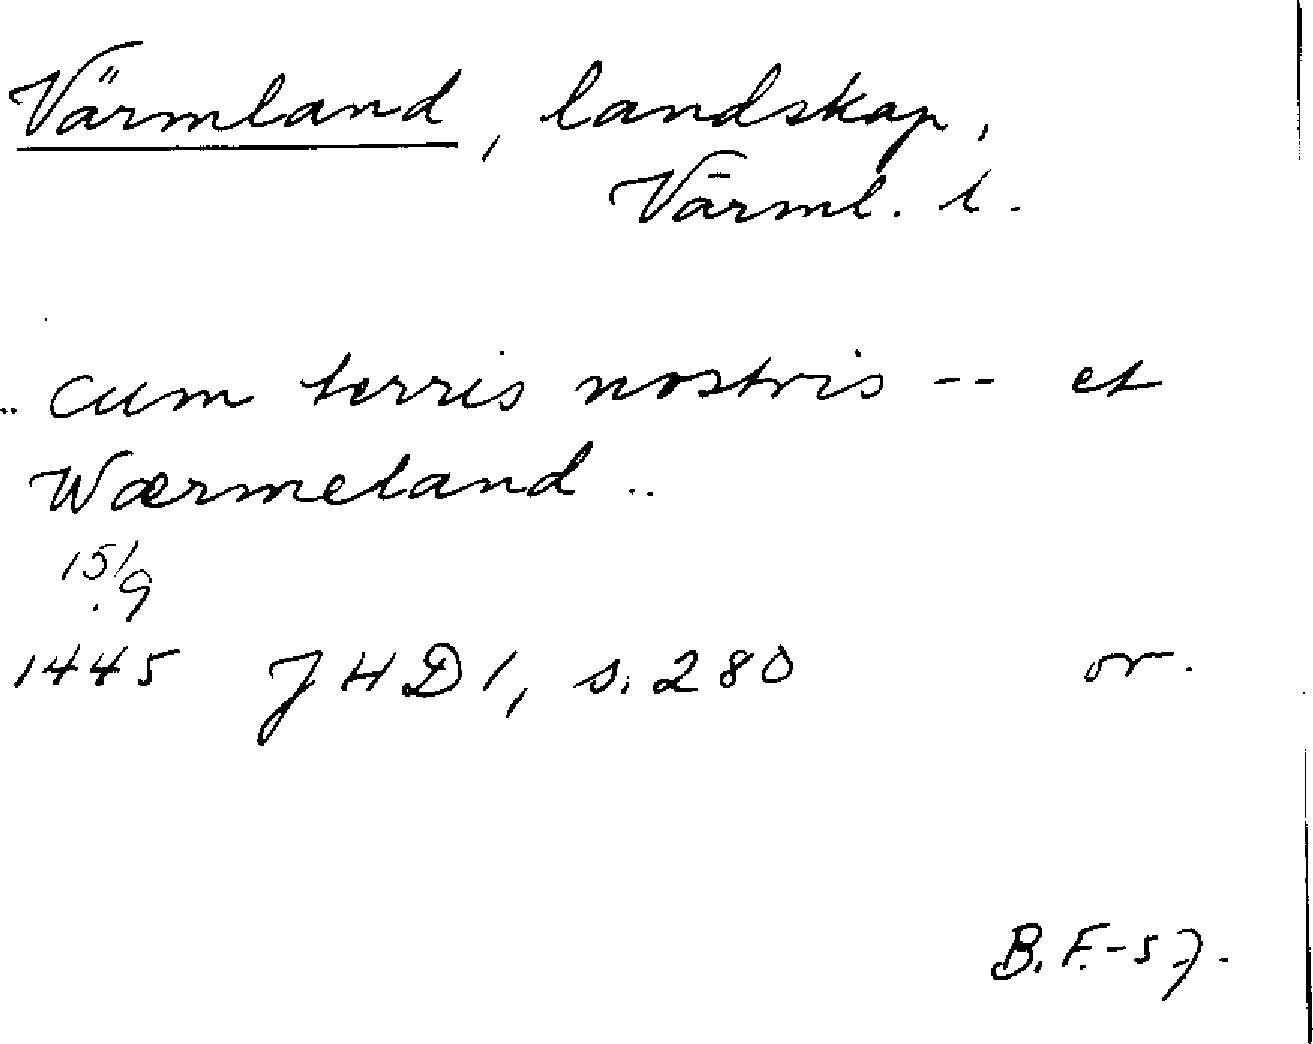 Värmland, landskap,
Värml. l.
.. cum terris nostris -- et
Wærmeland ..
15/9
1445 JHD 1, s. 280 or.
B. F. - 57.